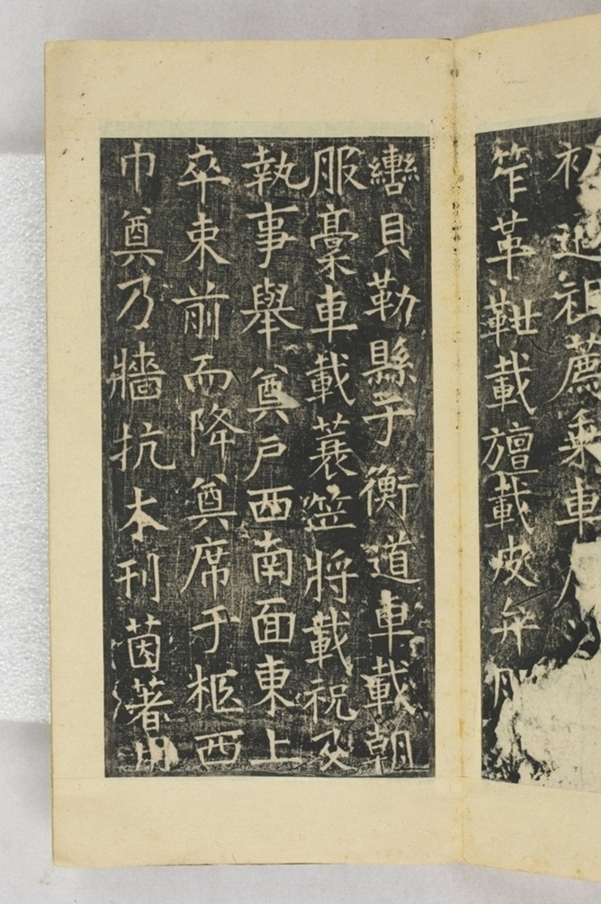 初適祖薦乘車
笮革靾載旜載皮弁服
轡貝勒縣于衡道車載朝
服稾車載蓑笠將載祝及
執事舉奠戶西南面東上
卒束前而降奠席于柩西
巾奠乃牆抗木刊茵著用